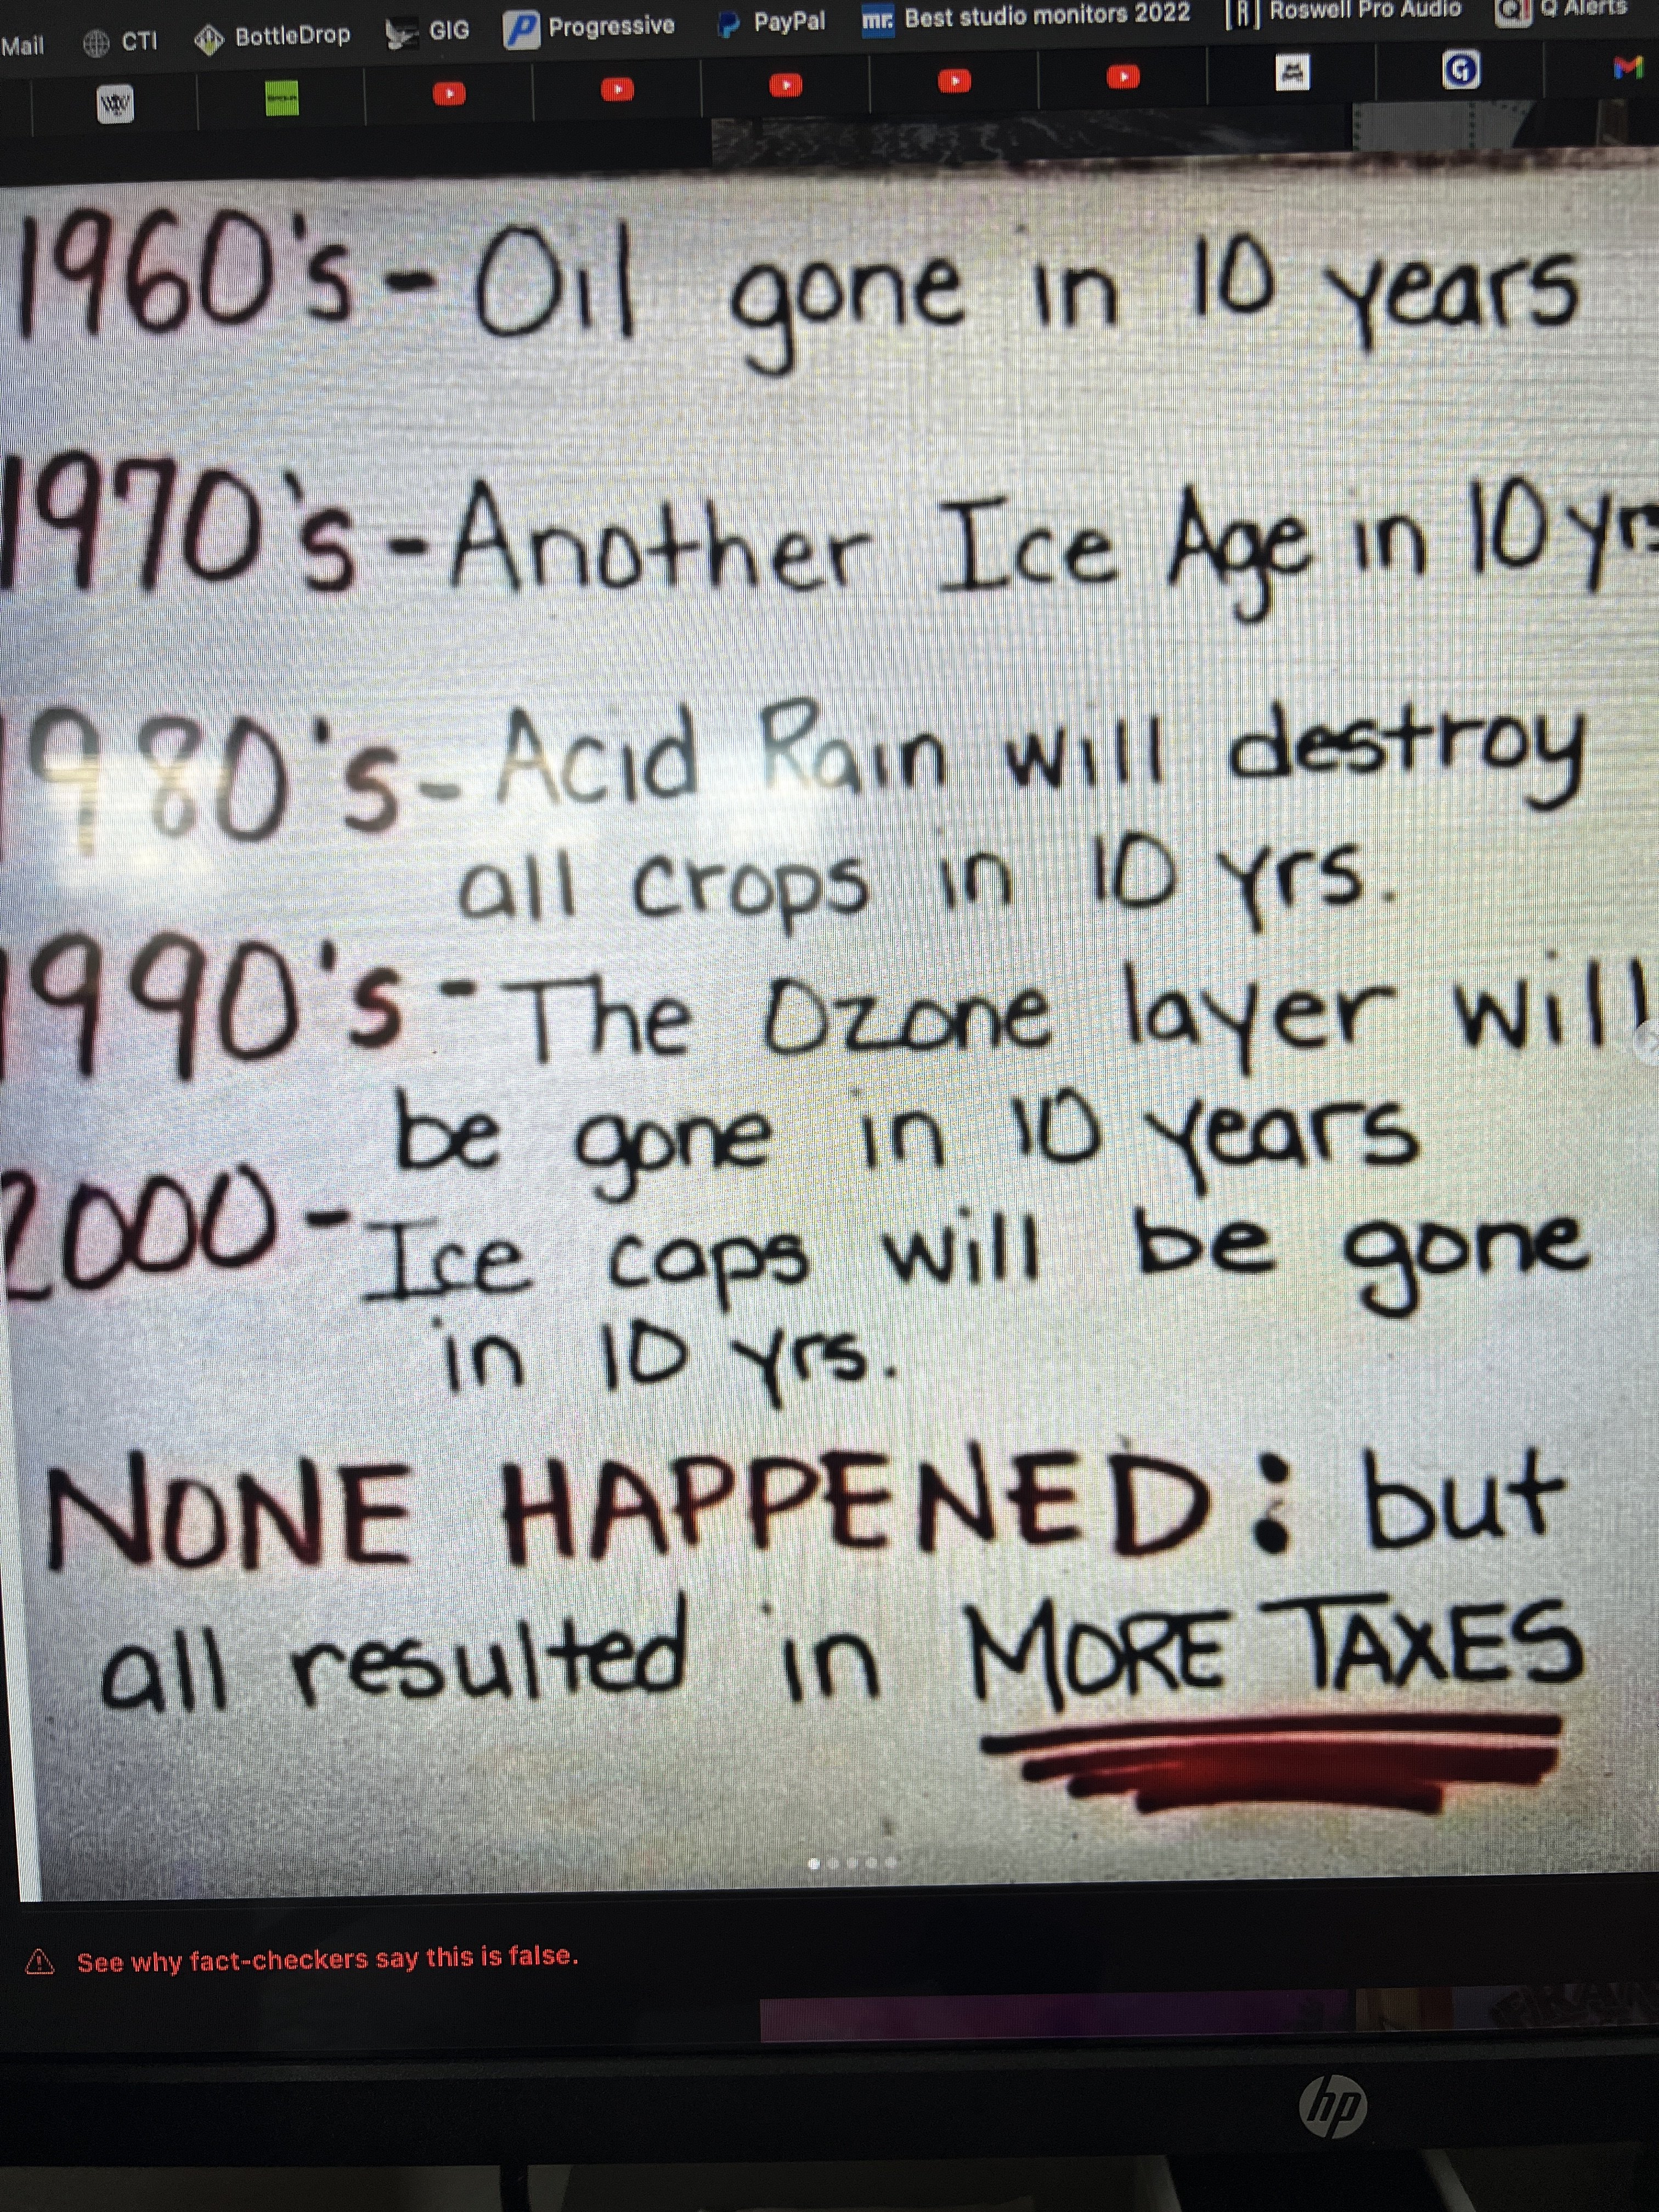 Mail CTI BottleDrop GIG Progressive PayPal mr. Best studio monitors 2022 [R] Roswell Pro Audio Q Alerts
1960's - Oil gone in 10 years
1970's - Another Ice Age in 10 yrs
1980's - Acid Rain will destroy
all crops in 10 yrs.
1990's - The Ozone layer will
be gone in 10 years
2000 - Ice caps will be gone
in 10 yrs.
NONE HAPPENED: but
all resulted in MORE TAXES
See why fact-checkers say this is false.
hp